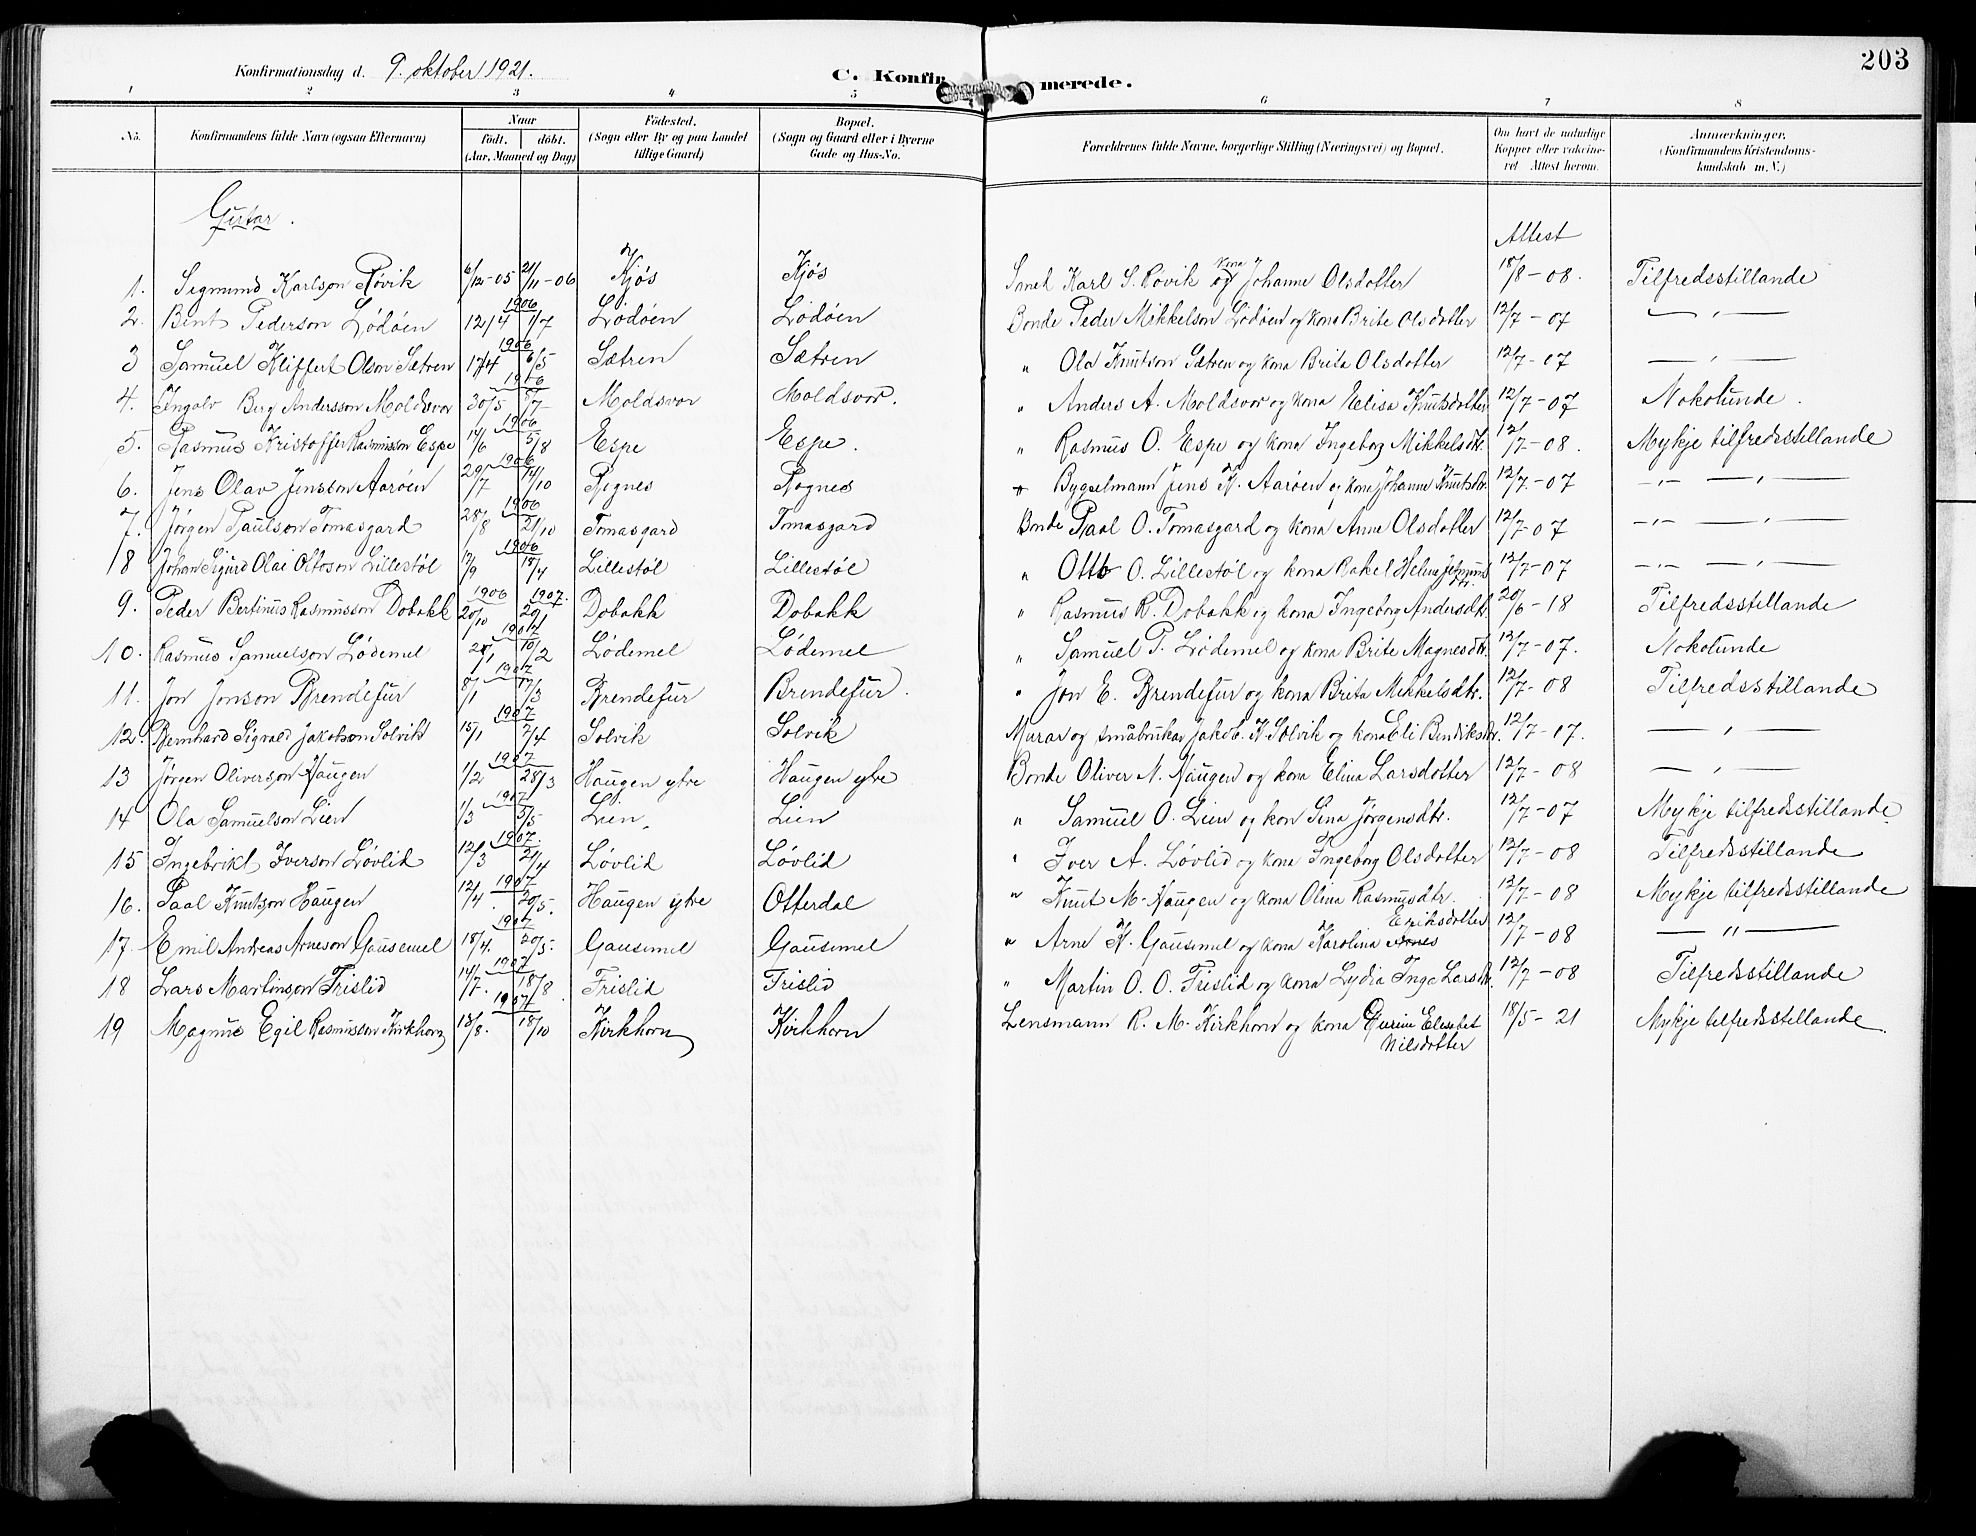 203
Konfirmationsdag d. 9. oktober 1921. C. Konfirmerede.
1 2 3 4 5 6 7 8
No. Konfirmandens fulde Navn (ogsaa Efternavn) Naar født, døbt. (Aar, Maaned og Dag) Fødested. (Sogn eller By og paa Landet tillige Gaard) Bopæl. (Sogn og Gaard eller i Byerne Gade og Hus-No. Forældrenes fulde Navne, borgerlige Stilling (Næringsvei) og Bopæl. Om havt de naturlige Kopper eller vaccineret Attest herom. Anmærkninger. (Konfirmandens Kristendomskundskab m. V.)
Gutar. Attest
1. Sigmund Karlson Røvik 6/12-05 21/11-06 Kjøs Kjøs Smed Karl S. Røvik og kona Johanne Olsdotter 18/8-08. Tilfredsstillande
1906
2. Bent Pederson Lødøen 12/4 1/7 Lødøen Lødøen Bonde Peder Mikkelson Lødøen og kona Brite Olsdotter 12/7-07 — " —
1906
3 Samuel Kliffert Olson Sætren 17/4 6/5 Sætren Sætren " Ola Knutson Sætren og kona Brita Olsdotter 12/7-07 — " —
1906
4. Ingolv Berg Andersson Moldsvor 30/5 8/7 Moldsvor Moldsvor. " Anders A. Moldsvor og kona Elisa Knutsdotter 12/7-07 Nokolunde.
1906
5. Rasmus Kristoffer Rasmusson Espe 14/6 5/8 Espe Espe. " Rasmus O. Espe og kona Ingeborg Mikkelsdtr. 12/7-08. Mykje tilfredsstillande
1906
6. Jens Olav Jensson Aarøen 29/7 14/10 Rognes Rognes " Bygselmann Jens K. Aarøen og kona Johanne Knutsdtr. 12/7-07 -"- — " —
1906
7. Jørgen Paulson Tomasgard 28/8 21/10 Tomasgard Tomasgard Bonde Paal O. Tomasgard og kona Anne Olsdotter 12/7-07 -"- — " —
1906
18 Johan Sigurd Olai Ottoson Lillestøl 17/9 18/4 Lillestøl Lillestøl " Otto O. Lillestøl og kona Rakel Helene 12/7-07 -"- — " —
1906 1907.
9. Peder Bertinus Rasmusson Dobakk 20/10 20/1 Dobakk Dobakk " Rasmus R. Dobakk og kona Ingeborg Andersdtr. 20/6-18 Tilfredsstillande
1907
10. Rasmus Samuelson Lødemel 2/1 10/2 Lødemel Lødemel " Samuel P. Lødemel og kona Brite Magnesdtr. 12/7-07. Nokolunde
1907
11. Jon Jonson Brendefur 8/1 17/3 Brendefur Brendefur. " Jon E. Brendefur og kona Brita Mikkelsdtr. 12/7-08 Tilfredsstillande
1907
12. Bernhard Sigvald Jakobson Solvik 15/1 7/4 Solvik Solvik Murar og småbrukar Jakob. K. Solvik og kona Eli Bendiksdtr. 12/7-17. — " —
1907
13 Jørgen Oliverson Haugen 1/2 28/3 Haugen ytre Haugen ytre Bonde Oliver N. Haugen og kona Elina Larsdotter 12/7-08 — " —
1907
14 Ola Samuelson Lien 1/3 5/5 Lien Lien " Samuel O. Lien og kon Sina Jørgensdtr. 12/7-07 Mykje tilfredsstillande.
1907.
15 Ingebrikt Iverson Løvlid 12/3 21/4 Løvlid Løvlid " Iver A. Løvlid og kona Ingeborg Olsdotter 12/7-08 Tilfredsstillande
1907
16. Paal Knutson Haugen 12/4 20/5. Haugen ytre Otterdal " Knut M. Haugen og kona Olina Rasmusdtr. 12/7-08 Mykje tilfredsstillande
1907
Eriksdotter
17. Emil Andreas Arneson Gausemel 18/4. 20/5. Gausemel Gausemel " Arne K. Gausemel og kona Karolina Arnes 12/7-08 — " —
1907
18 Lars Martinson Frislid 14/7. 18/8 Frislid Frislid " Martin O. O. Frislid og kona Lydia Inga Larsdtr. 12/7-08 Tilfredsstillande
1907
19 Magnus Egil Rasmusson Kirkhorn 13/8. 18/10 Kirkhorn Kirkhorn Lensmann R. M. Kirkhorn og kona Gurine Elisabet 18/5-21 Mykje tilfredsstillande.
Nilsdotter